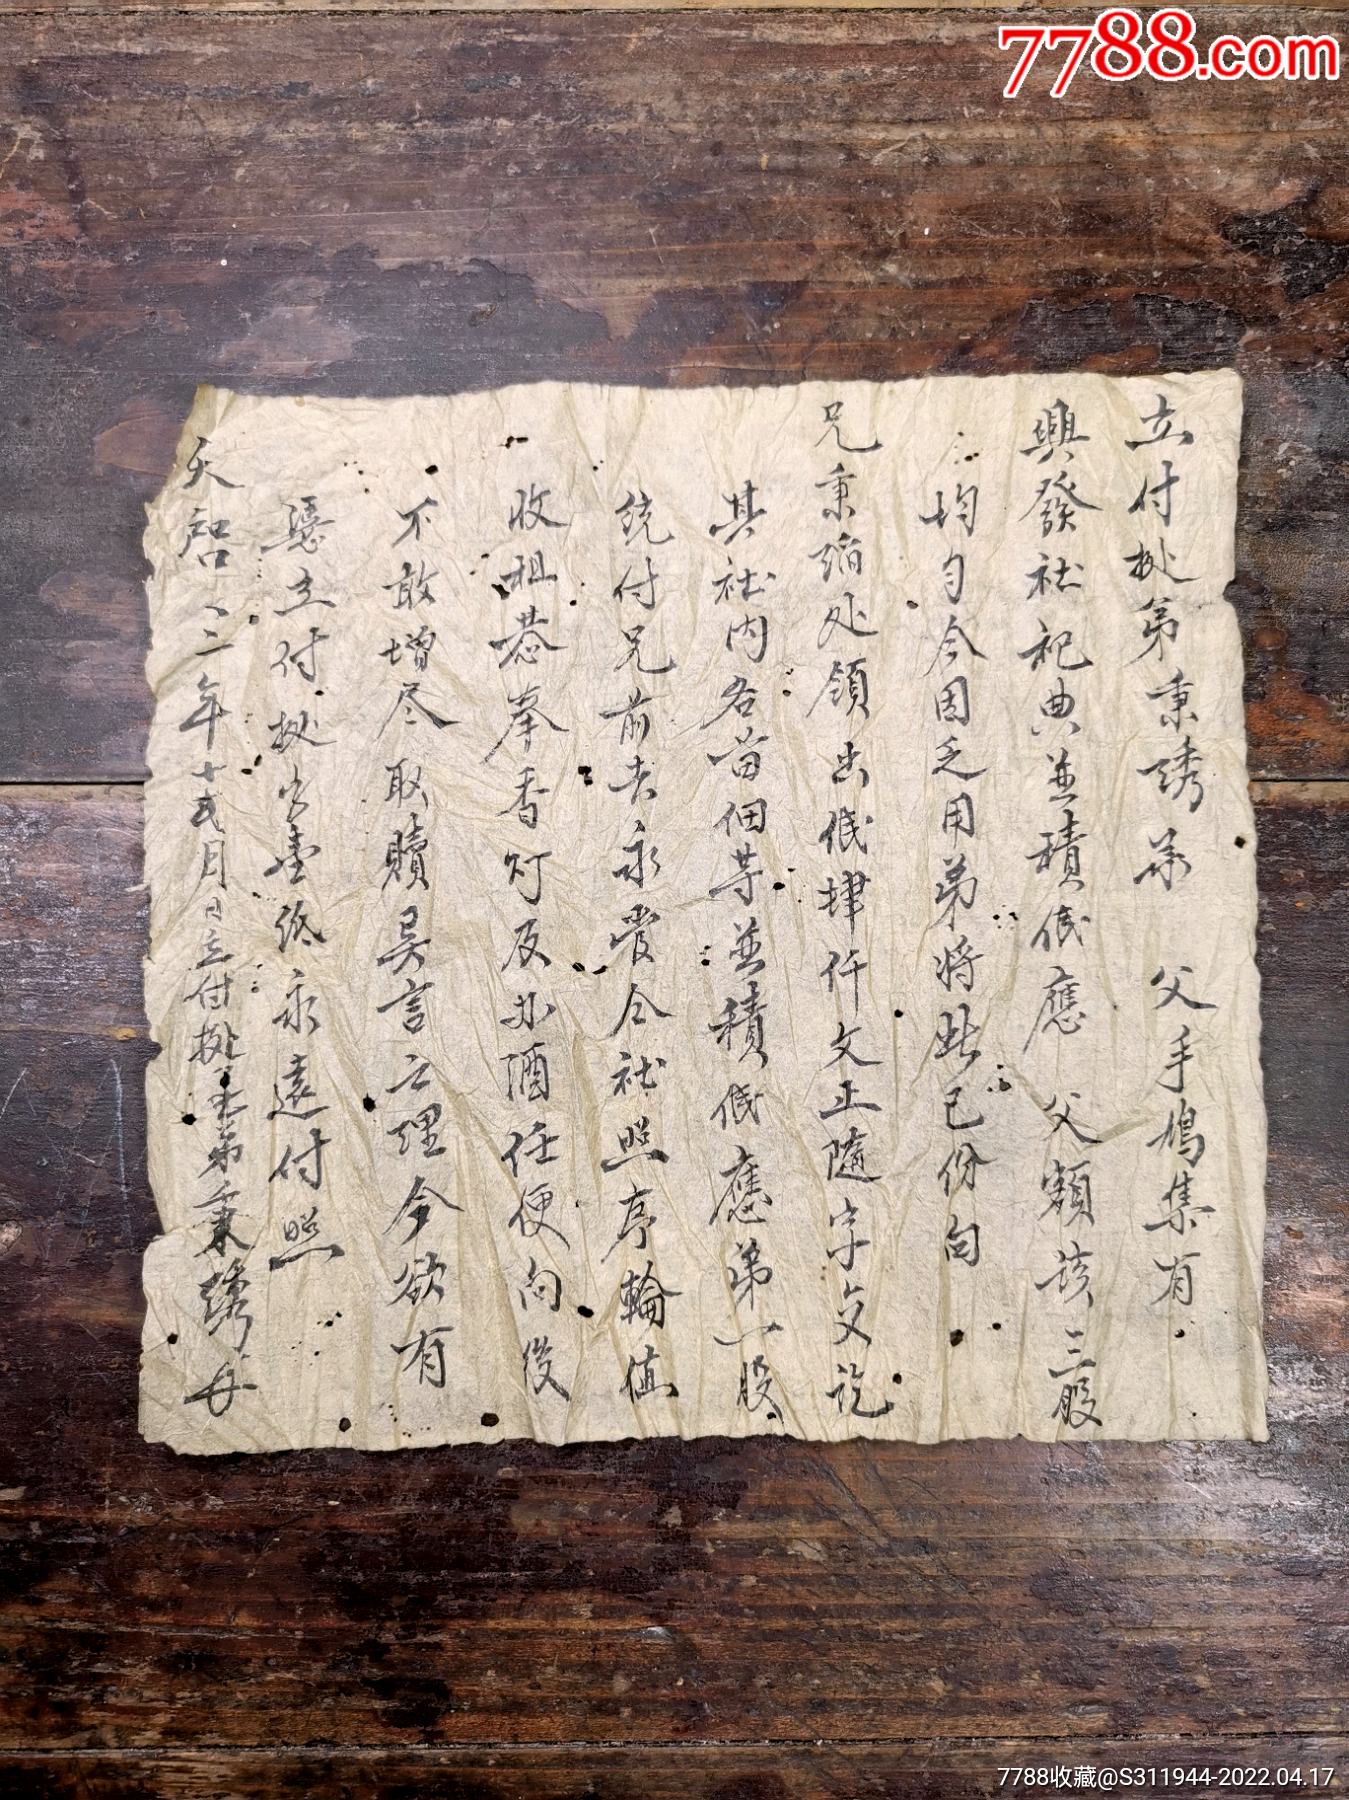 7788.com
立付批弟秉琇承父手鳩集有
興發社祀典並積低應父額該三股
均勻今因乏用弟將此己份向
兄秉処領出低肆仟文正隨字交訖
其社内各苗佃等並積低應弟一股
統付兄前去永管今社照序輪值
收租恭奉香灯及办酒任便向後
不敢增尽取贖異言之理今欲有
憑立付批字壹紙永遠付照
天啓二年十弍月日立付批字弟秉琇
7788收藏@S311944-2022.04.17